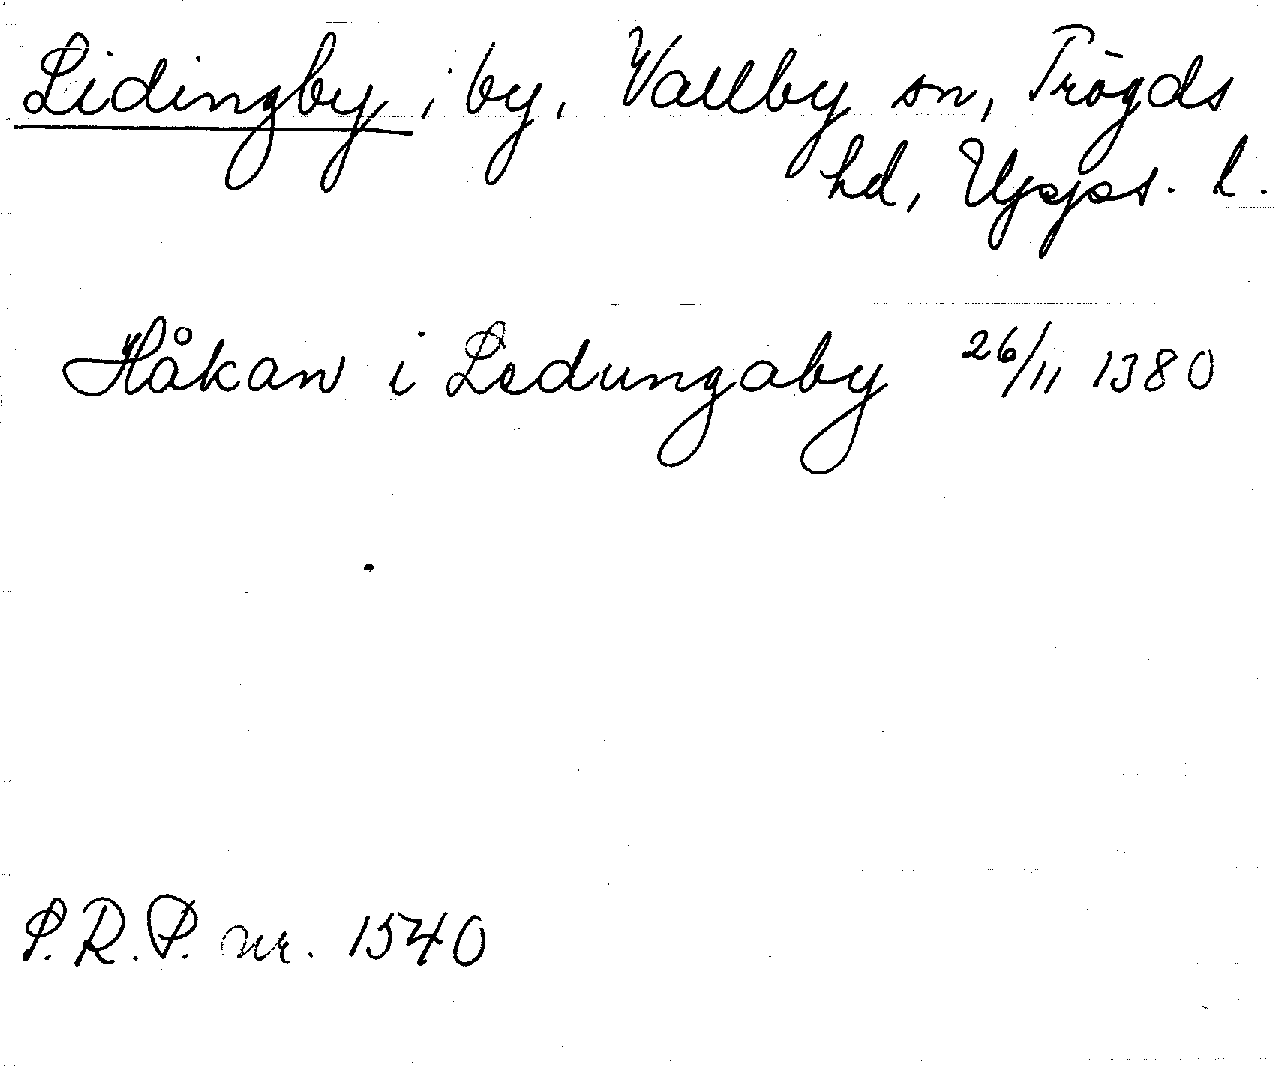 Lidingby, by, Vallby sn, Trögds
hd, Upps. l.
Håkan i Ledungaby 26/11 1380
P.R.P. nr. 1540